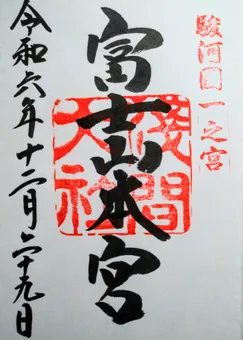 駿河国一之宮
富士山本宮
浅間大社
令和六年十二月二十九日